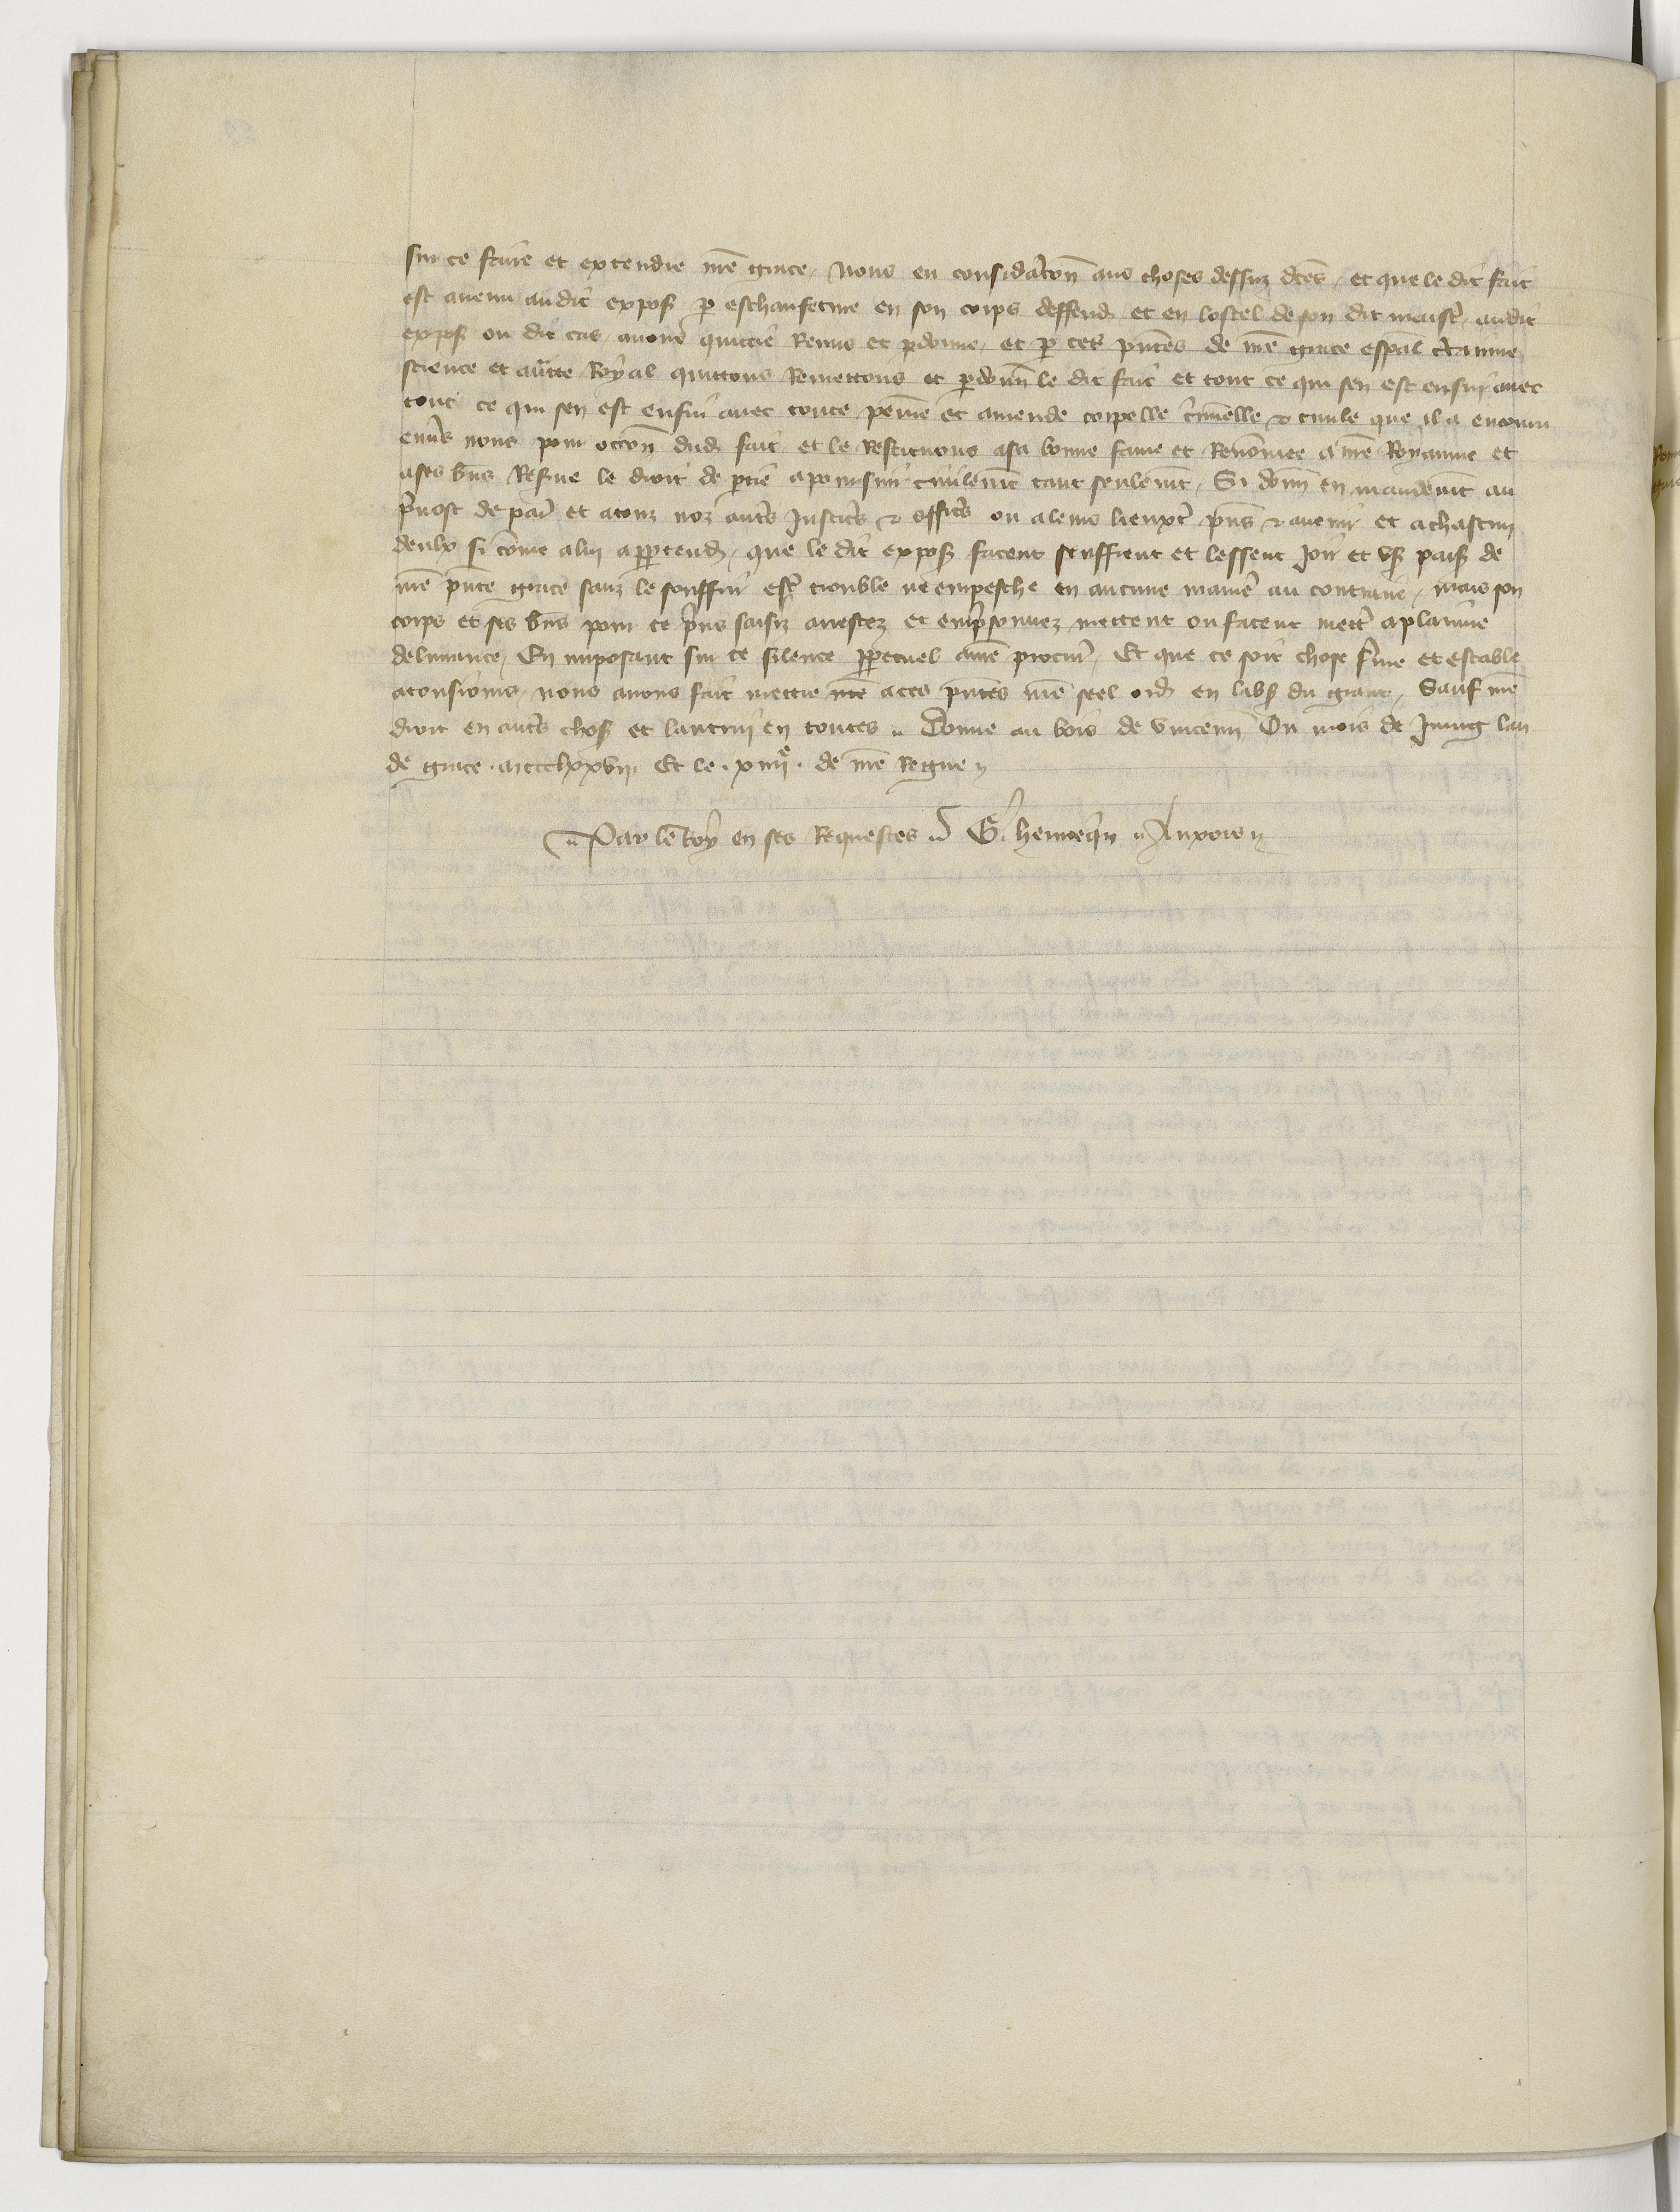 sur ce faire et extendre nre grace, nous en consideracon aus choses dessuz dces, et que le dit fait
est avenu audit expos p eschaufeture en son corps deffend et en lostel de son dit maistr, audit
expos ou dit cas avons quictie Remis et pdonne, et p ces pntes de nre grace espal ctainne
science et auctte Royal quittons Remettons et pdonn le dit fait et tout ce qui sen est ensui avec
tout ce qui sen est ensui avec toute peinne et amende corpelle criminelle & civile que il a encouru
envs nous pour occon dud fait et le Restituons asa bonne fame et Renomee a nre Royaume et
ases bns Reserve le droit de ptie apoursuir civilemt tant seulemt, Si donn en mandemt au
pvost de par et atouz noz auts Justics & offics ou aleurs lieuxt pns & avenir et achascun
deulx si come alui apptend, que le dit expos facent seuffrent et lessent Joir et us paisz de
nre pnte grace sanz le souffrir estr trouble ne empesche en aucune manie au contraire, mais son
corps et ses bns pour ce prins saisiz arrestez et empsonnez mettent ou facent mettr aplainne
delivrance, En imposant sur ce silence ppetuel anre procur, Et que ce soit chose ferme et estable
atousiours, nous avons fait mettre nre aces pntes nre seel ord en labs du grant, Sauf nre
droit en auts chos et lautrui en toutes. Donne au bois de vincenn Ou mois de Juing lan
de grace. mccclxxvii. Et le. xiiiie. de nre Regne
Par le Roy en ses Requestes. G. hennequin Anxore